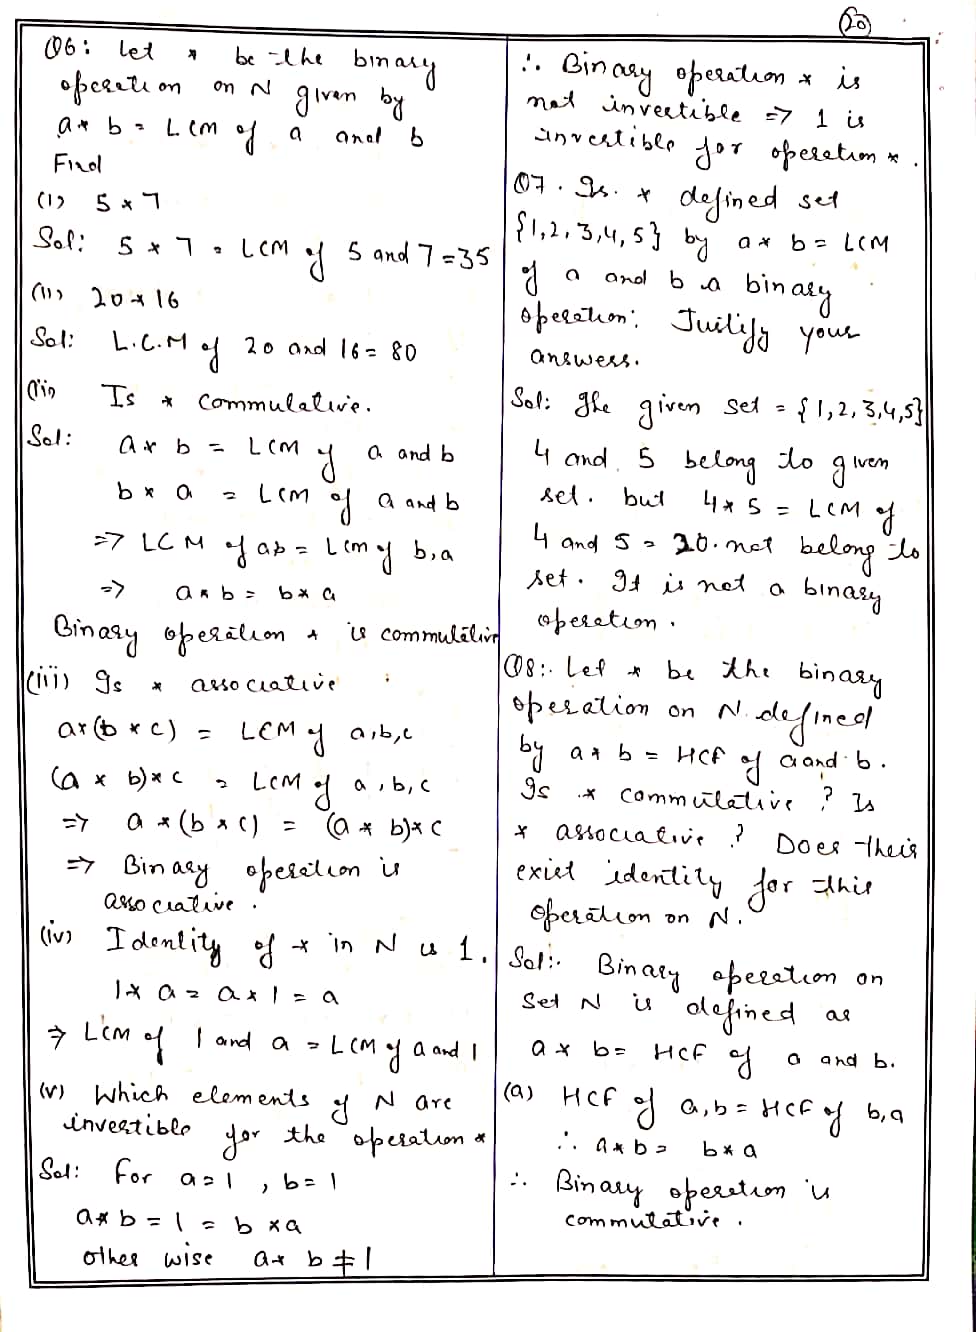 20
Q6: Let * be the binary
operation on N given by
a * b = LCM of a and b
Find
(i) 5 * 7
Sol: 5 * 7 = LCM of 5 and 7 = 35
(ii) 20 * 16
Sol: L.C.M of 20 and 16 = 80
(ii) Is * commulative.
Sol: a * b = LCM of a and b
b * a = LCM of a and b
=> LCM of ab = LCM of b,a
=> a * b = b * a
Binary operation * is commulative
(iii) Is * associative :
a*(b * c) = LCM of a,b,c
(a * b)*c = LCM of a,b,c
=> a *(b * c) = (a * b)*c
=> Binary operation is
associative.
(iv) Identity of * in N is 1.
1* a = a * 1 = a
=> LCM of 1 and a = LCM of a and 1
(v) Which elements of N are
invertible for the operation *
Sol: For a=1, b=1
a*b = 1 = b *a
other wise a* b ≠ 1
∴ Binary operation * is
not invertible => 1 is
invertible for operation *.
Q7. Is. * defined set
{1,2,3,4,5} by a* b = LCM
of a and b a binary
operation: Jutify your
answers.
Sol: The given set = {1,2,3,4,5}
4 and 5 belong to given
set. but 4*5 = LCM of
4 and 5 = 20. not belong to
set. It is not a binary
operation.
Q8:. Let * be the binary
operation on N. defined
by a * b = HCF of a and b.
Is * commutative? Is
* associative? Does their
exist identity for this
operation on N.
Sol:. Binary operation on
Set N is defined as
a * b = HCF of a and b.
(a) HCF of a,b = HCF of b,a
∴ a*b = b*a
∴ Binary operation is
commutative.